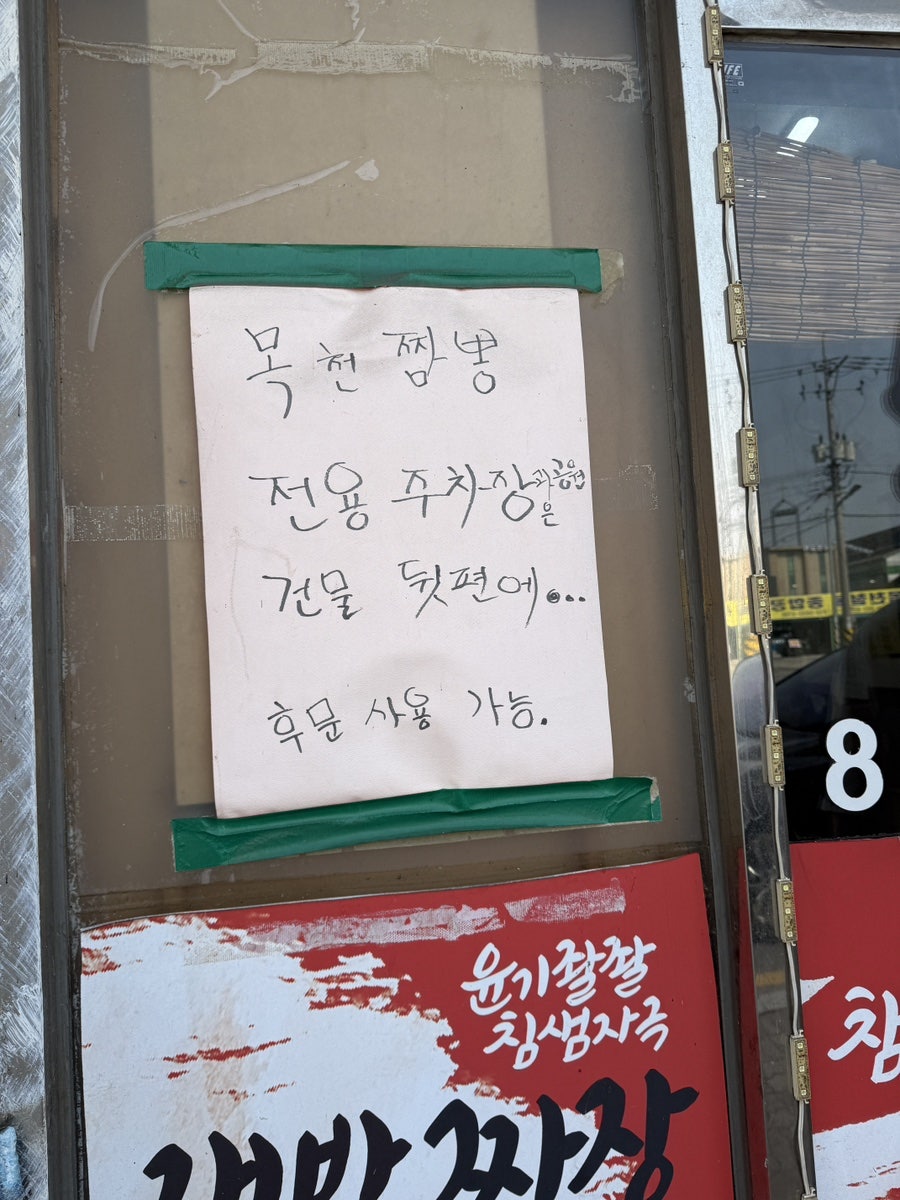 목천 짬뽕
전용 주차장은
건물 뒷편에...
후문 사용 가능.
8
윤기좔좔
침샘자극
짜장
침